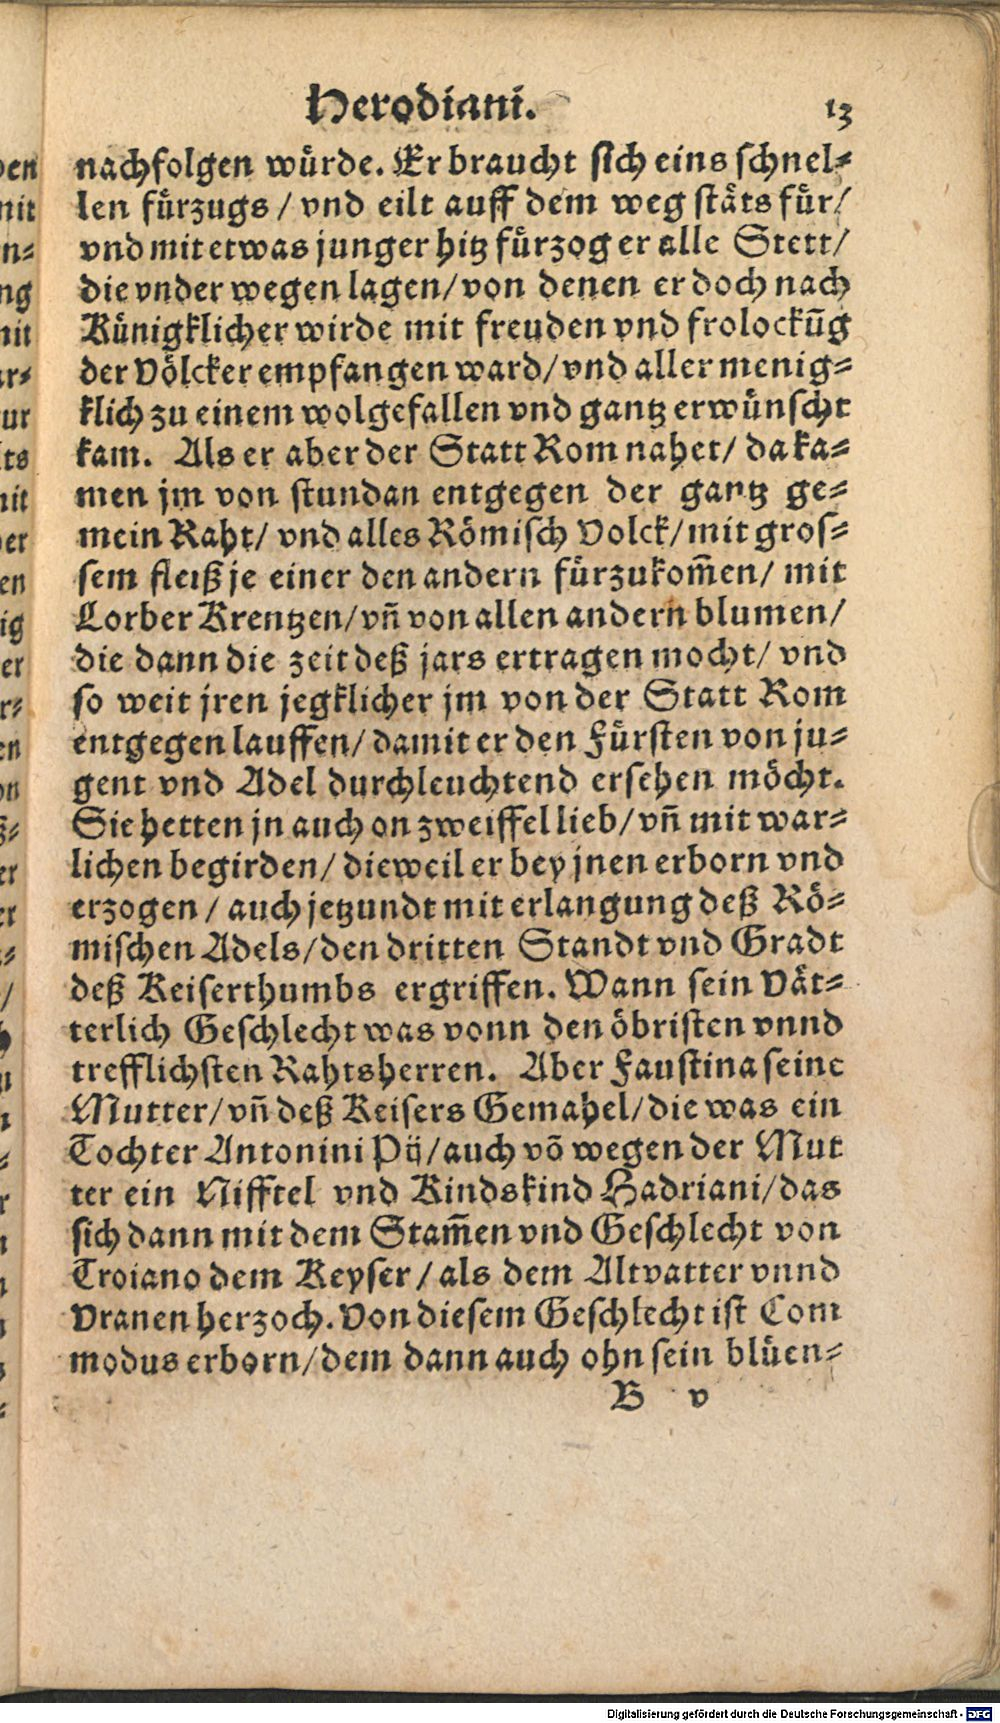 Herodiani. 13
nachfolgen würde. Er braucht sich eins schnel-
len fürzugs / vnd eilt auff dem weg stäts für/
vnd mit etwas junger hitz fürzog er alle Stett/
die vnder wegen lagen/ von denen er doch nach
Künigklicher wirde mit freuden vnd frolockūg
der Völcker empfangen ward/ vnd aller menig-
klich zu einem wolgefallen vnd gantz erwünscht
kam. Als er aber der Statt Rom nahet/ da ka-
men jm von stundan entgegen der gantz ge-
mein Raht/ vnd alles Römisch Volck/ mit gros-
sem fleiß je einer den andern fürzukom̄en/ mit
Lorber Krentzen/ vn̄ von allen andern blumen/
die dann die zeit deß jars ertragen mocht/ vnd
so weit jren jegklicher jm von der Statt Rom
entgegen lauffen/ damit er den Fürsten von ju-
gent vnd Adel durchleuchtend ersehen möcht.
Sie hetten jn auch on zweiffel lieb/ vn̄ mit war-
lichen begirden/ dieweil er bey jnen erborn vnd
erzogen / auch jetzundt mit erlangung deß Rö-
mischen Adels/ den dritten Standt vnd Gradt
deß Keiserthumbs ergriffen. Wann sein Vät-
terlich Geschlecht was vonn den öbristen vnnd
trefflichsten Rahtsherren. Aber Faustina seine
Mutter/ vn̄ deß Keisers Gemahel/ die was ein
Tochter Antonini Pij/ auch vō wegen der Mut
ter ein Nifftel vnd Kindskind Hadriani/ das
sich dann mit dem Stam̄en vnd Geschlecht von
Troiano dem Keyser / als dem Altvatter vnnd
Vranen herzoch. Von diesem Geschlecht ist Com
modus erborn/ dem dann auch ohn sein blüen-
B v
Digitalisierung gefördert durch die Deutsche Forschungsgemeinschaft - DFG